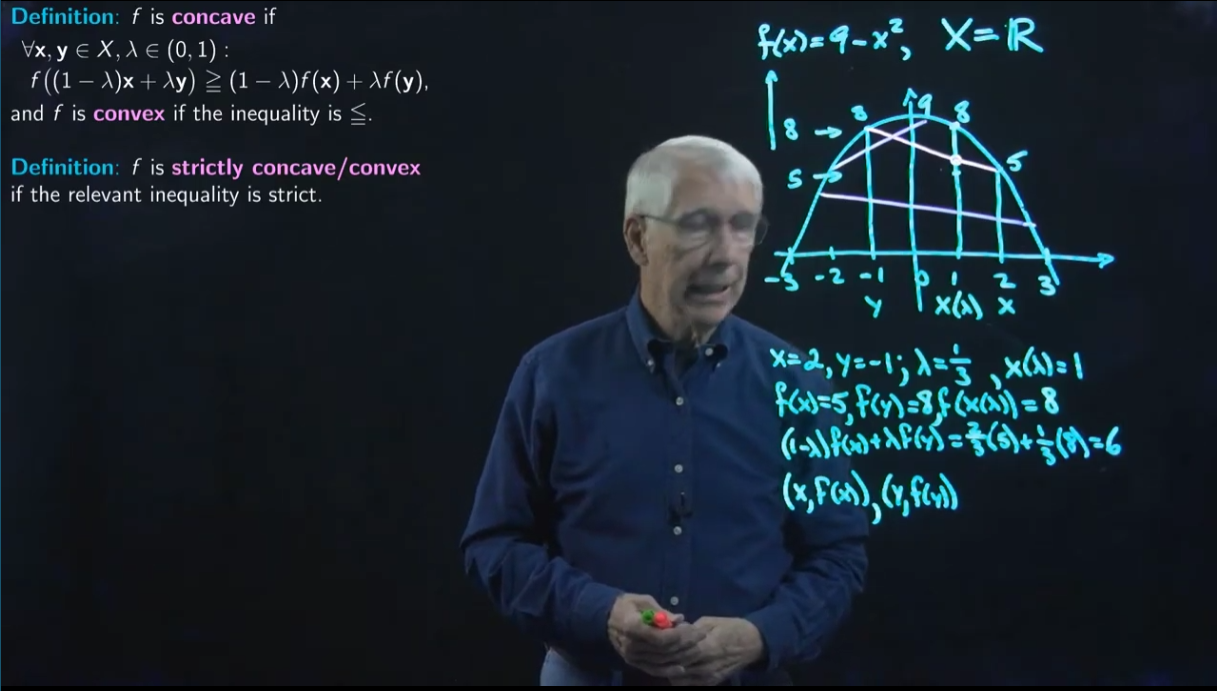 Definition: f is concave if
∀x, y ∈ X, λ ∈ (0, 1) :
f((1 − λ)x + λy) ≧ (1 − λ)f(x) + λf(y),
and f is convex if the inequality is ≦.
Definition: f is strictly concave/convex
if the relevant inequality is strict.
f(x)=9-x², X=ℝ
8 → 8 9 8
5 → 5
-3 -2 -1 0 1 2 3
y x(λ) x
x=2, y=-1; λ=1/3, x(λ)=1
f(x)=5, f(y)=8, f(x(λ))=8
(1-λ)f(x)+λf(y)=2/3(5)+1/3(8)=6
(x,f(x)), (y,f(y))